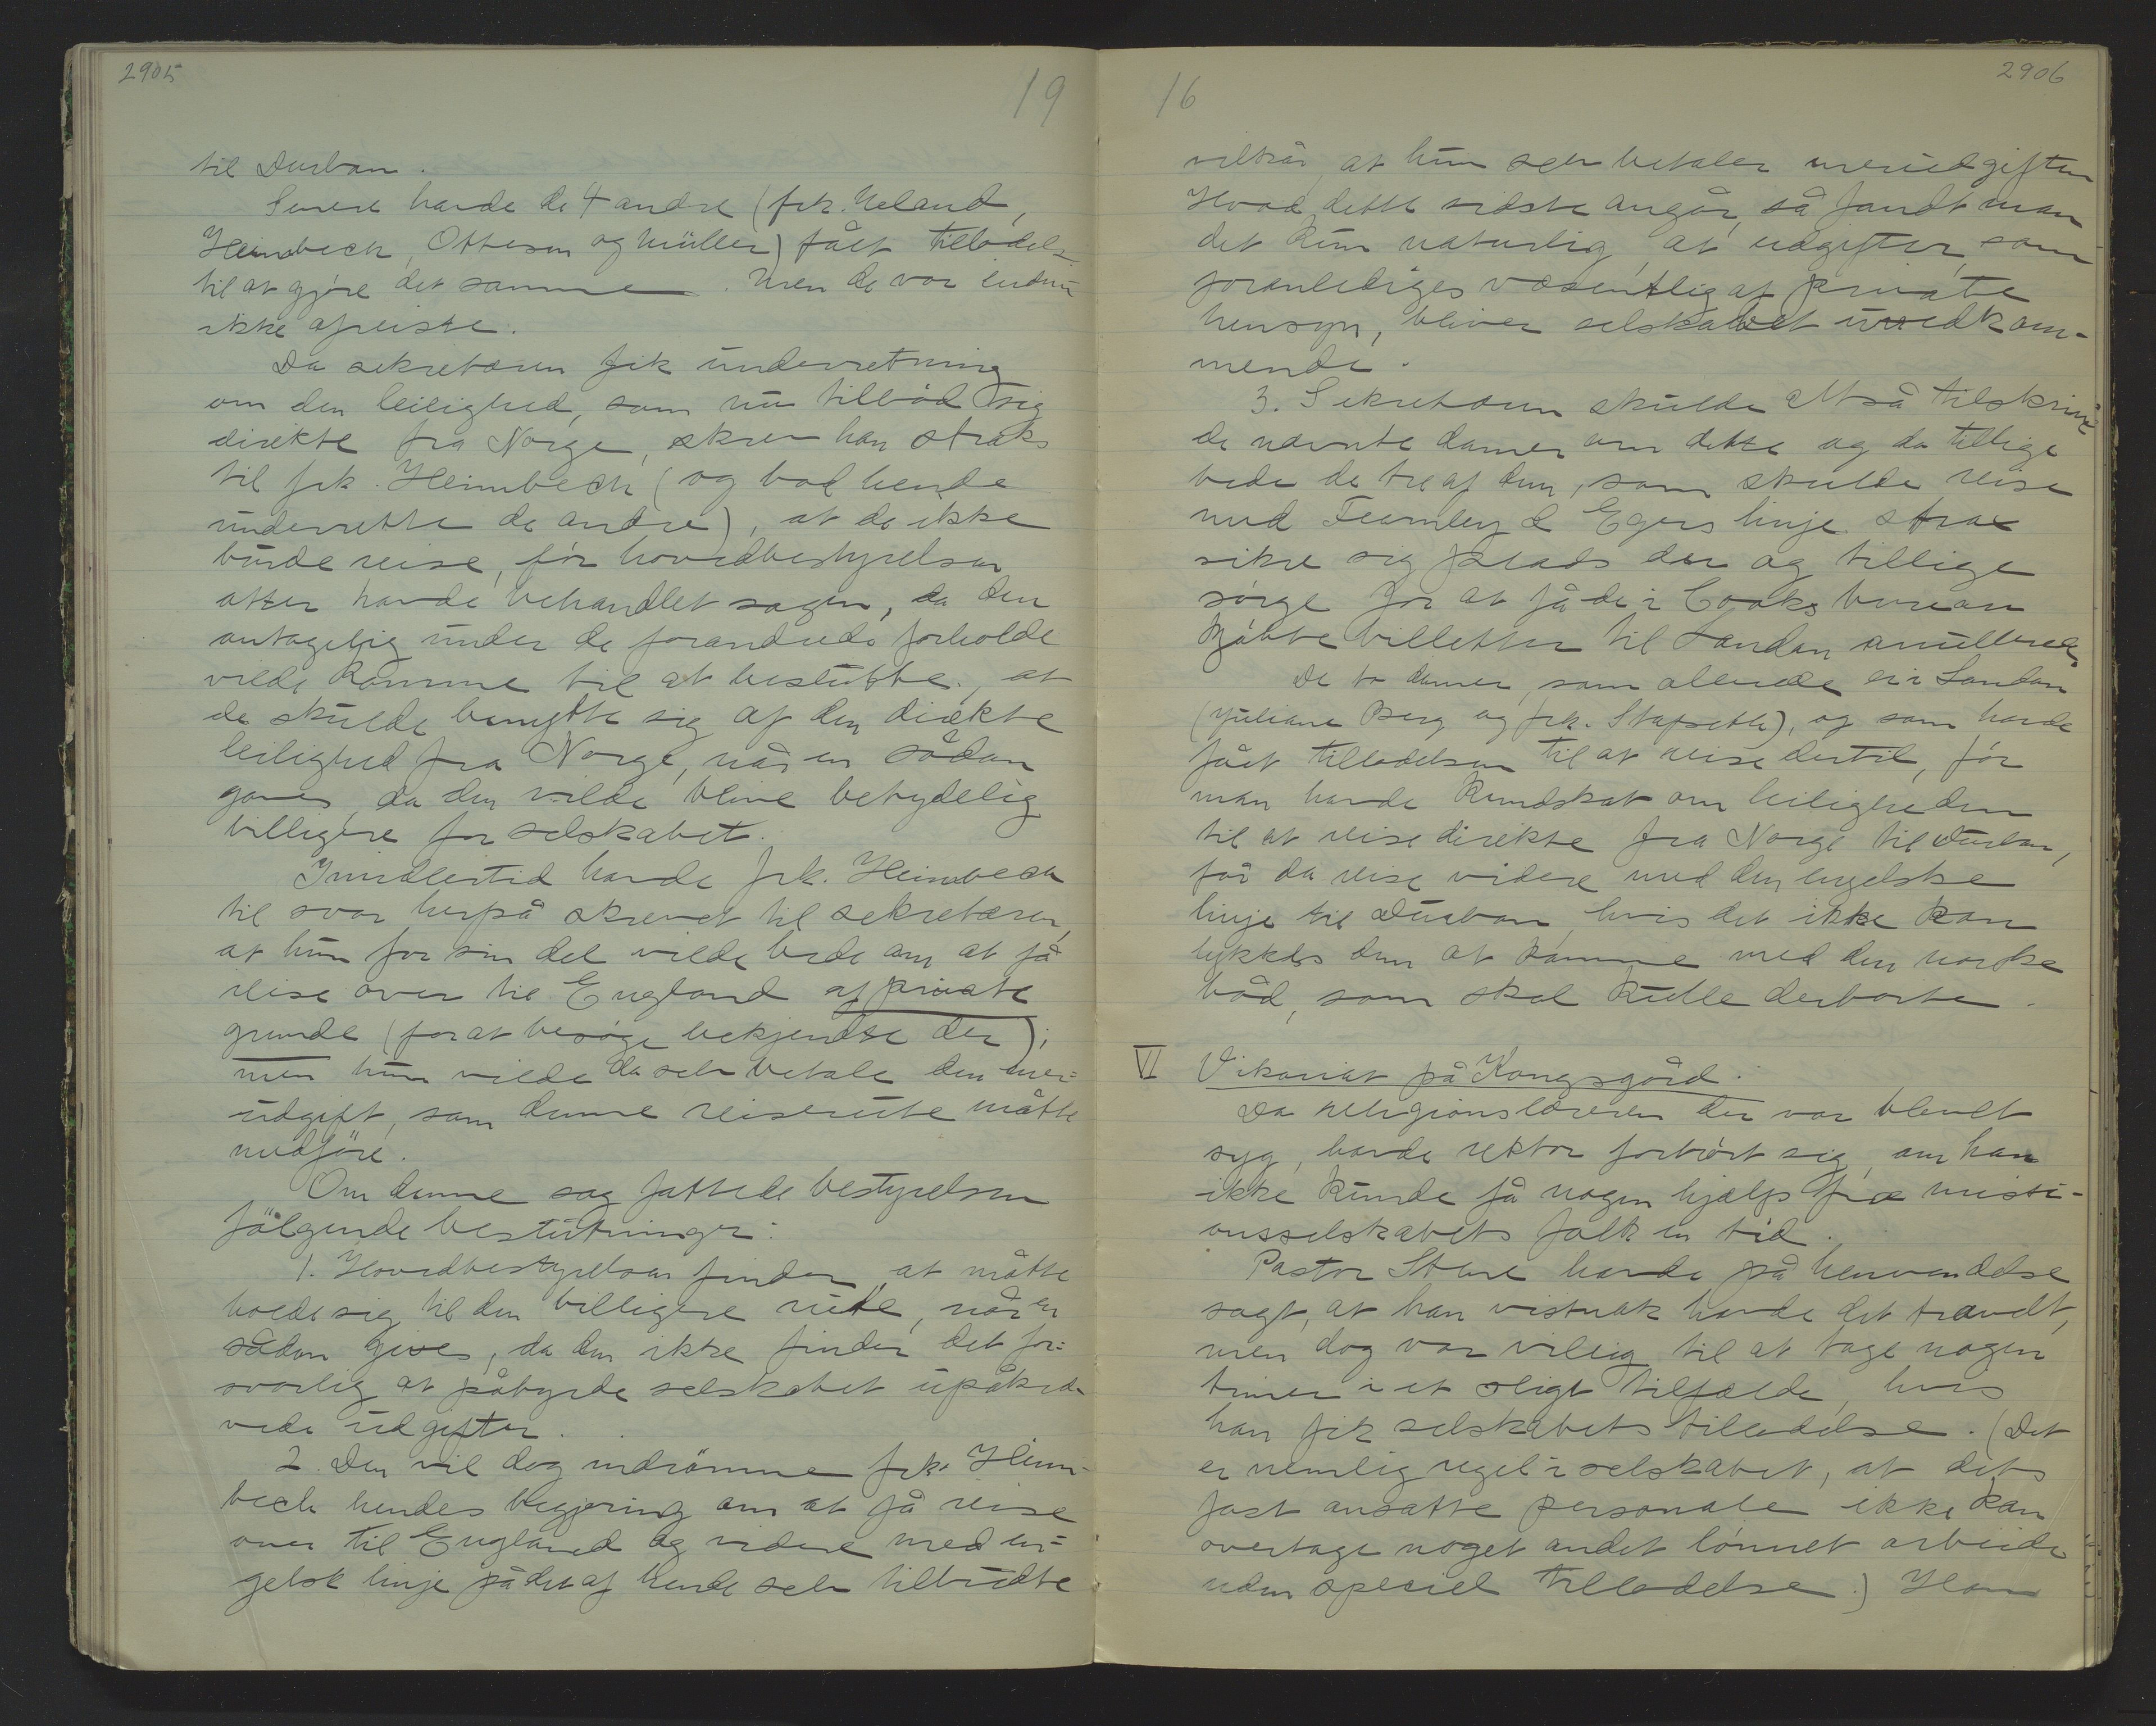 2905
19
til Durban.
Senere havde de 4 andre (frk. Ueland,
Heimbeck, Ottesen og Müller) fået tilladelse
til at gjøre det samme. Men de var endnu
ikke afreiste.
Da sekretæren fik underretning
om den leilighed, som nu tilbød sig
direkte fra Norge, skrev han straks
til frk. Heimbeck (og bad hende
underrette de andre), at de ikke
burde reise, før hovedbestyrelsen
atter havde behandlet sagen, da den
antagelig under de forandrede forholde
vilde komme til at beslutte, at
de skulde benytte sig af den direkte
leilighed fra Norge, når en sådan
gaves, da den vilde blive betydelig
billigere for selskabet.
Imidlertid havde frk. Heimbeck
til svar herpå skrevet til sekretæren,
at hun for sin del vilde bede om at få
reise over til England af private
grunde (for at besøge bekjendte der);
men hun vilde da selv betale den mer-
udgift, som denne reiserute måtte
medføre.
Om denne sag fattede bestyrelsen
følgende beslutninger:
1. Hovedbestyrelsen finder at måtte
holde sig til den billigere rute, når en
sådan gives, da den ikke finder det for-
svarlig at påbyrde selskabet upåkræ-
vede udgifter.
2. Den vil dog indrømme frk. Heim-
beck hendes begjæring om at få reise
over til England og videre med en-
gelsk linje på det af hende selv tilbudte
16
2906
vilkår, at hun selv betaler merudgiften
Hvad dette sidste angår, så fandt man
det kun naturlig, at udgifter, som
foranlediges væsentlig af private
hensyn, bliver selskabet uvedkom-
mende.
3. Sekretæren skulde altså tilskrive
de nævnte damer om dette og da tillige
bede de tre af dem, som skulde reise
med Fearnley & Egers linje strax
sikre sig plads der og tillige
sørge for at få de i Cooks bureau
kjøbte billetter til London annullerede.
De to damer, som allerede er i London
(Juliane Berg og frk. Stapseth), og som havde
fået tilladelsen til at reise dertil, før
man havde kundskab om leiligheden
til at reise direkte fra Norge til Durban,
får da reise videre med den engelske
linje til Durban, hvis det ikke kan
lykkes dem at komme med den norske
båd, som skal kulle derborte.
VI Vikariat på Kongsgård.
Da religionslæreren der var blevet
syg, havde rektor forhørt sig, om han
ikke kunde få nogen hjælp fra missi-
onsselskabets folk en tid.
Pastor Stene havde på henvendelse
sagt, at han vistnok havde det travelt,
men dog var villig til at tage nogen
timer i et sligt tilfælde, hvis
han fik selskabets tilladelse. (Det
er nemlig regel i selskabet, at dets
fast ansatte personale ikke kan
overtage noget andet lønnet arbeide
uden speciel tilladelse.) Han